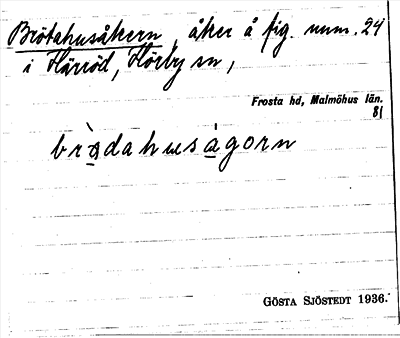 Brötahusåkern, åker å fig. num. 24
i Härröd, Hörby sn,
Frosta hd, Malmöhus län.
81
brådahuságorn
GÖSTA SJÖSTEDT 1936.